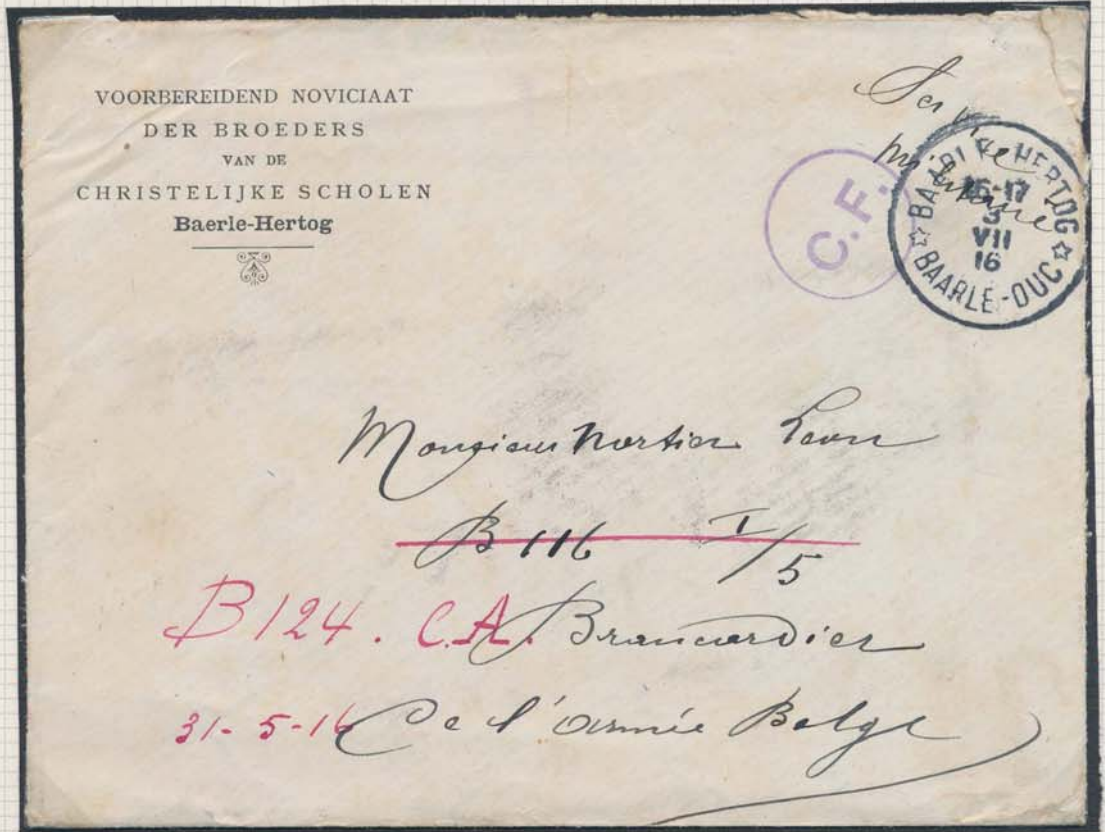 VOORBEREIDEND NOVICIAAT
DER BROEDERS
VAN DE
CHRISTELIJKE SCHOLEN
Baerle-Hertog
Service
militaire
C.F.
BAARLE-HERTOG
15-17
3
VII
16
BAARLE-DUC
Monsieur Mortier Leon
B 116 I/5
B 124. C.A. Brancardier
31-5-16 de l'armée Belge